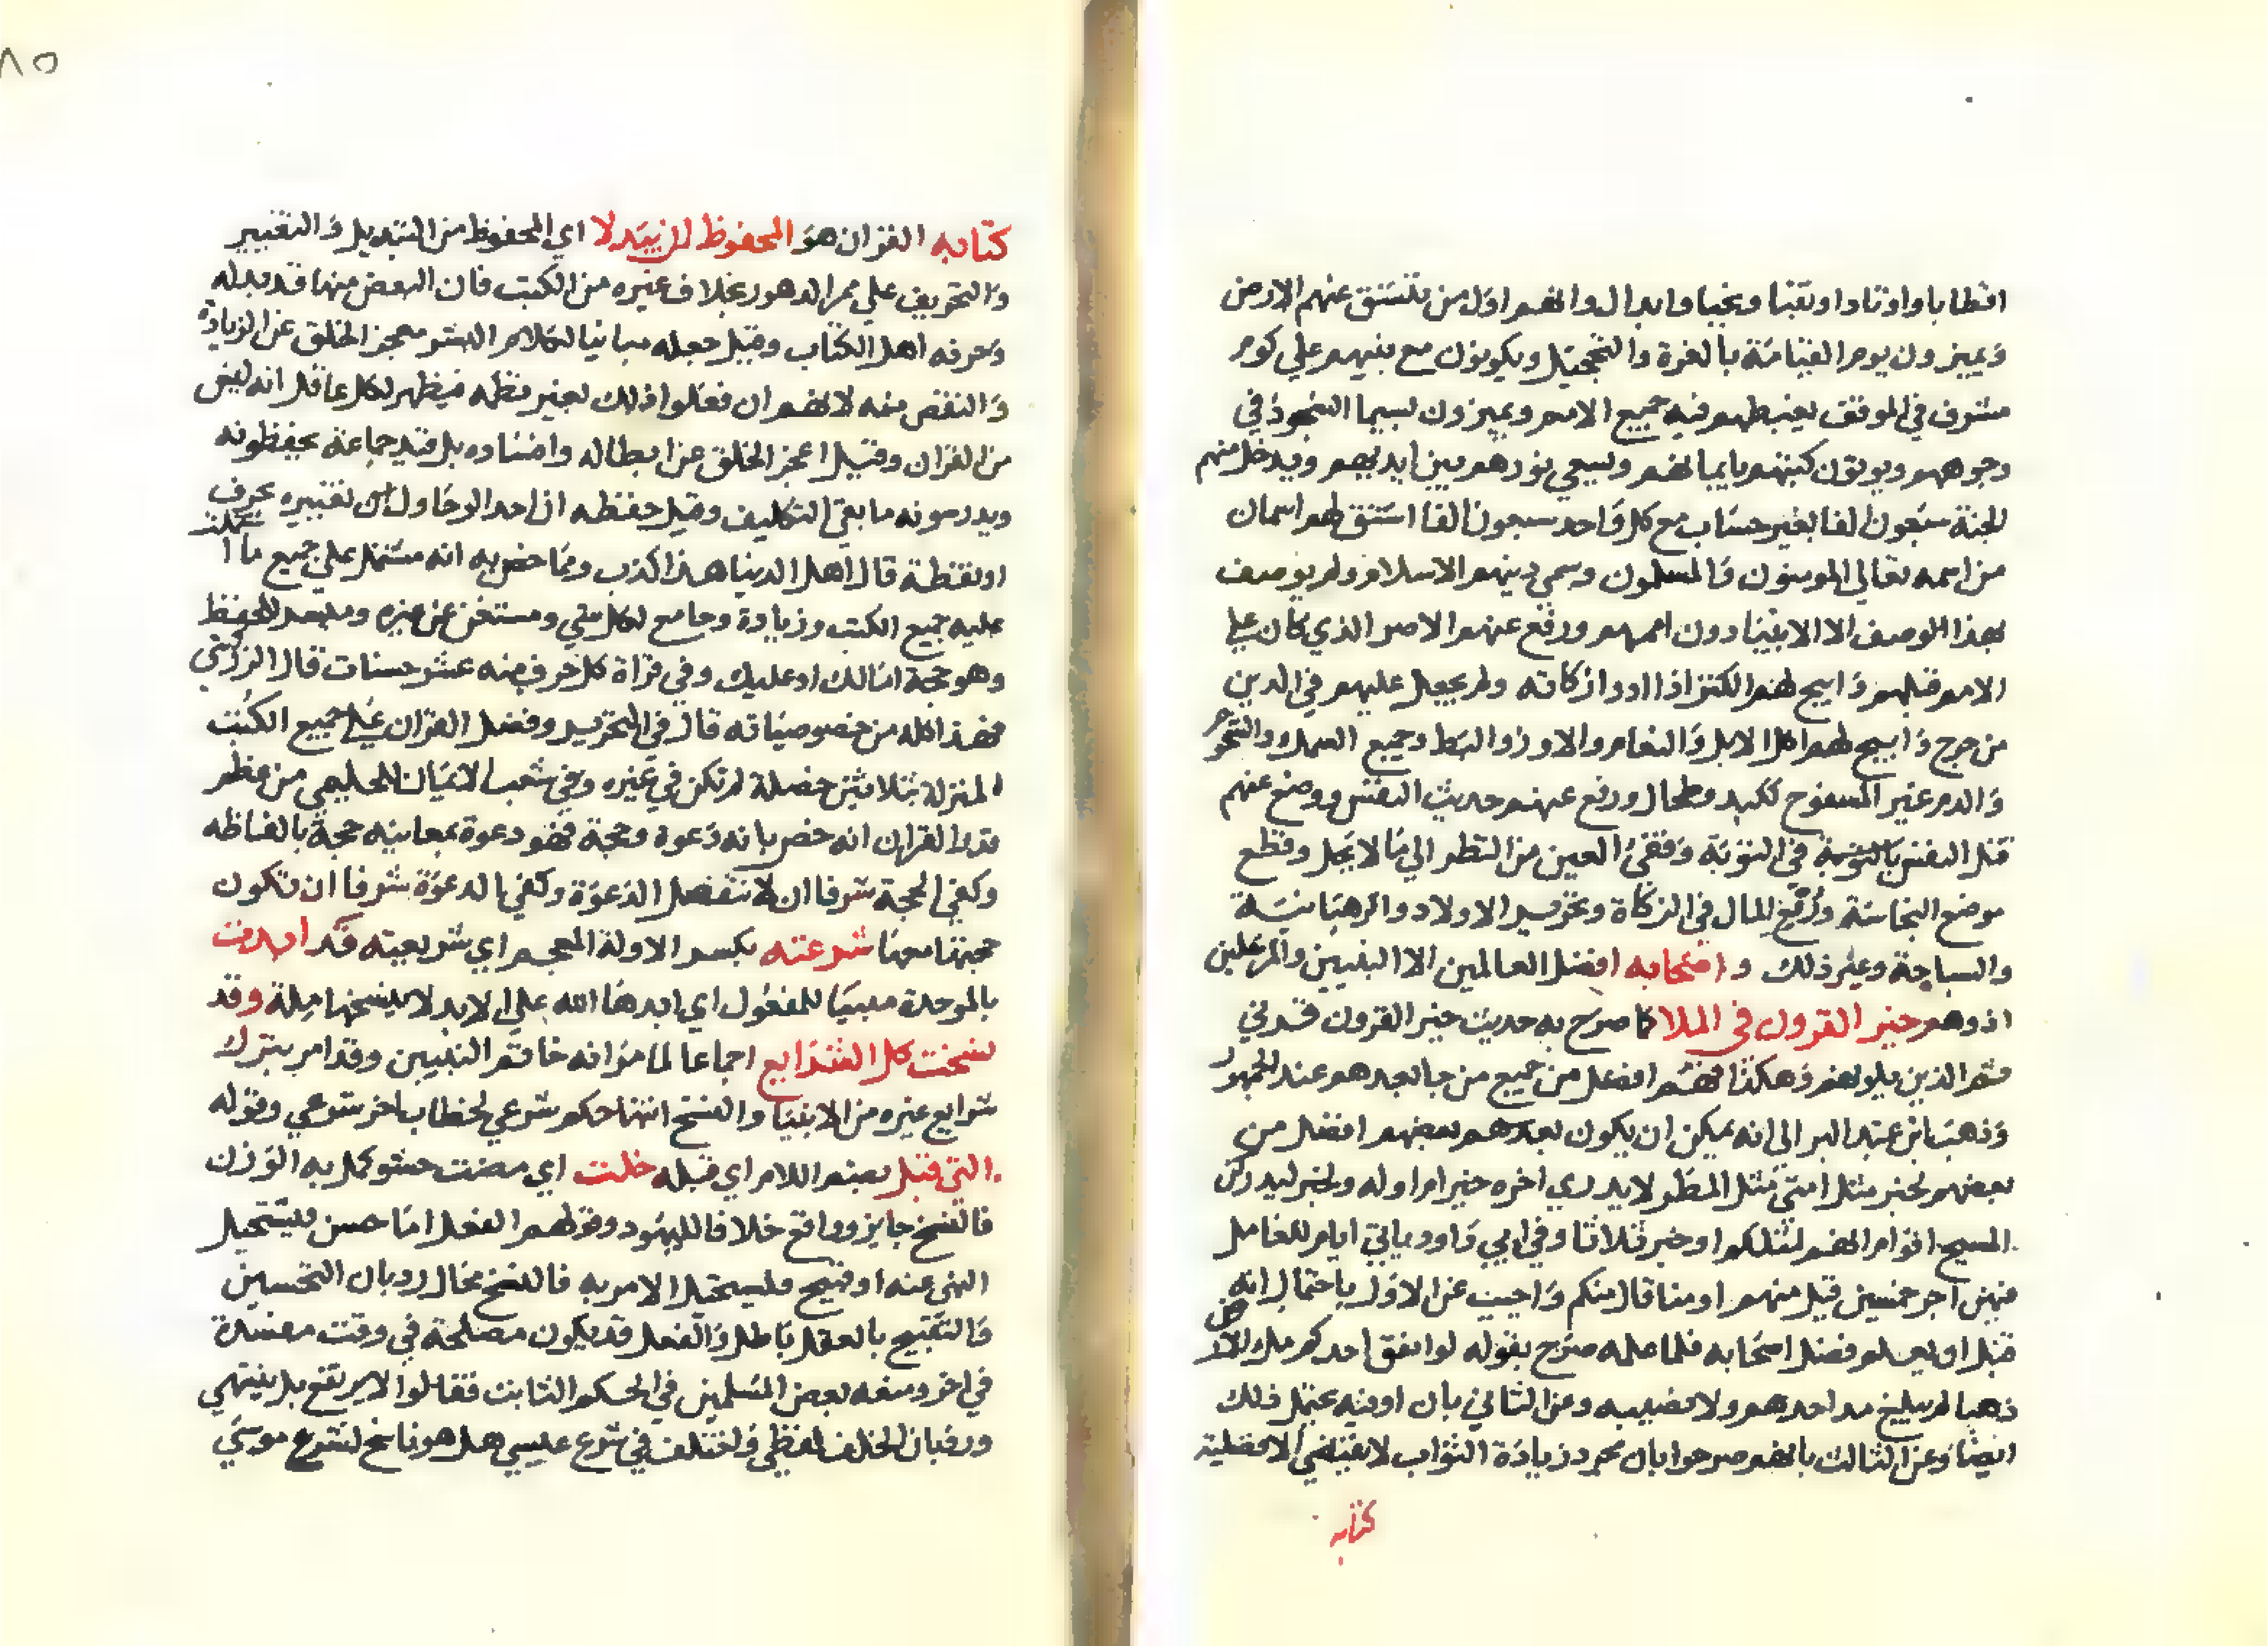 اقطابا واوتادا ونقبا ونجبا وابدال وانهم اول من تنشق عنهم الارض
ويميزون يوم القيامة بالغرة والتحجيل ويكونون مع نبيهم علي كوم
مشرف في الموقف يغبطهم فيه جميع الامم ويميزون بسيما السجود في
وجوههم ويوتون كتبهم بايمانهم ويسعي نورهم بين ايديهم ويدخل منهم
الجنة سبعون الفا بغير حساب مع كل واحد سبعون الفا اشتق لهم اسمان
من اسمه تعالي المومنون والمسلمون وسمي دينهم الاسلام ولم يوصف
بهذا الوصف الا الانبيا دون اممهم ورفع عنهم الاصر الذي كان علي
الامم قبلهم وابيح لهم الكنز اذا ادوا زكاته ولم يجعل عليهم في الدين
من حرج وابيح لهم اكل الابل والنعام والاوز والبط وجميع السمك والشحوم
والدم غير المسفوح ككبد وطحال ورفع عنهم حديث النفس ووضع عنهم
قتل النفس بالتوبة في التوبة وفقئ العين من النظر الي ما لا يحل وقطع
موضع النجاسة وربع المال في الزكاة وتحريم الاولاد والرهبانية
والسياحة وغير ذلك واصحابه افضل العالمين الا النبيين والمرسلين
اذ وهم خير القرون في الملا كما صرح به حديث خير القرون قرني
ثم الذين يلونهم وهكذا فهم افضل من جميع من جا بعدهم عند الجمهور
وذهب ابن عبد البر الي انه يمكن ان يكون بعدهم بعضهم افضل من
بعضهم لخبر مثل امتي مثل المطر لا يدري اخره خير ام اوله ولخبر ليدركن
المسيح اقوام انهم لمثلكم او خير ثلاثا وفي ابي داود ياتي ايام للعامل
فيهن اجر خمسين قيل منهم او منا قال منكم واجيب عن الاول باحتمال انه
قبل ان يعلم فضل اصحابه فلما علمه صرح بقوله لو انفق احدكم ملء الارض
ذهبا لم يبلغ مد احدهم ولا نصيفه وعن الثاني بان اوفيه يحتمل ذلك
ايضا وعن الثالث بانهم صرحوا بان مجرد زيادة الثواب لا يقتضي الافضلية
كتابه
٨٥
كتابه القران هو المحفوظ لن يبدلا اي المحفوظ من التبديل والتغيير
والتحريف علي ممر الدهور بخلاف غيره من الكتب فان البعض منها قد بدله
وحرفه اهل الكتاب وقيل جعله مباينا لكلام البشر معجز الخلق عن الزيادة
والنقص منه لانهم ان فعلوا ذلك تغير نظمه فيظهر لكل عاقل انه ليس
من القران وقيل اعجز الخلق عن ابطاله وافساده بل قيد جماعة يحفظونه
ويدرسونه ما بقي التكليف وقيل حفظه ان احدا لو حاول تغييره بحرف
او نقطة قال اهل الدنيا هذا كذب ومما خص به انه مشتمل علي جميع ما اشتملت
عليه جميع الكتب وزيادة وجامع لكل شي ومستغن عن غيره وميسر للحفظ
وهو حجة اما لك او عليك وفي قراة كل حرف منه عشر حسنات قال الزركشي
فهذا كله من خصوصياته قال في التحرير وفضل القران علي جميع الكتب
المنزلة بثلاثين خصلة لم تكن في غيره وفي شعب الايمان للحليمي من عظم
قدر القران انه خص بانه دعوة وحجة فهو دعوة بمعانيه حجة بالفاظه
وكفي الحجة شرفا ان لا تنفصل الدعوة وكفي بالدعوة شرفا ان تكون
حجتها معها شرعته بكسر الاولة المعجم اي شريعته قد ابدت
بالموحدة مبنيا للمفعول اي ابدها الله علي الابد لا ينسخها ملة وقد
نسخت كل الشرايع اجماعا لما مر انه خاتم النبيين وقد امر بترك
شرايع غيره من الانبيا والنسخ انتها حكم شرعي بخطاب اخر شرعي وقوله
التي قبل بضم اللام اي قبله خلت اي مضت حشو كمل به الوزن
فالنسخ جايز وواقع خلافا لليهود وقولهم الفعل اما حسن فيستحيل
النهي عنه او قبيح فيستحيل الامر به فالنسخ محال رد بان التحسين
والتقبيح بالعقل باطل والفعل قد يكون مصلحة في وقت مفسدة
في اخر ومنعه بعض المسلمين في الحكم الثابت فقالوا لا يرتفع بل ينتهي
ورد بان الخلف لفظي واختلف في شرع عيسي هل هو ناسخ لشرع موسي